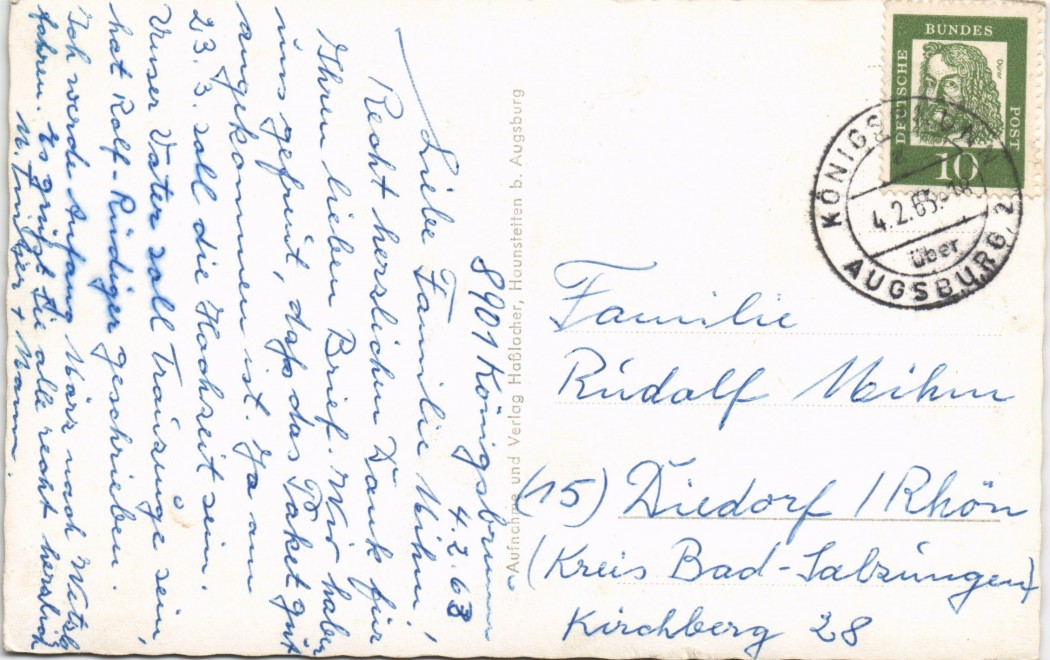 8901 Königsbrunn
4.2.63
Liebe Familie Mihm!
Recht herzlichen Dank für
Ihren lieben Brief. Wir haben
uns gefreut, daß das Paket gut
angekommen ist. Ja am
23.3. soll die Hochzeit sein.
Unser Vater soll Trauzeuge sein,
hat Rolf-Rüdiger geschrieben.
Ich werde Anfang März nach
fahren. Es grüßt Sie alle recht herzlich
u. Mann.
Aufnahme und Verlag Haßlacher, Haunstetten b. Augsburg
DEUTSCHE
BUNDES
POST
Dürer
10
KÖNIGSBRUNN
4.2.63-18
über
AUGSBURG 2
Familie
Rudolf Mihm
(15) Diedorf / Rhön
(Kreis Bad-Salzungen)
Kirchberg 28